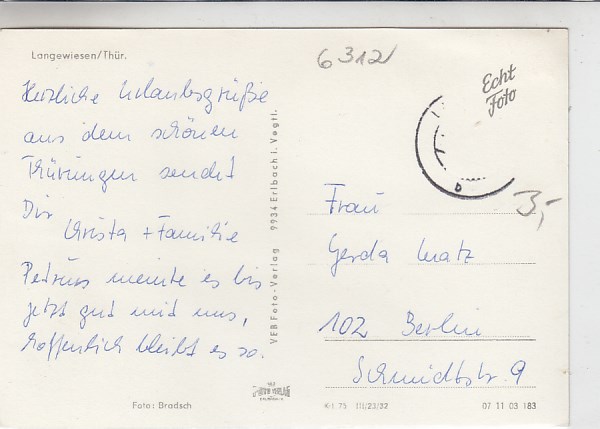 Langewiesen/Thür.
6312
Echt
Foto
Herzliche Urlaubsgrüße
aus dem schönen
Thüringen sendet
Dir
Christa + Familie
Petrus meinte es bis
jetzt gut mit uns,
hoffentlich bleibt es so.
VEB Foto-Verlag 9934 Erlbach i. Vogtl.
3,-
Frau
Gerda Matz
102 Berlin
Schmidtstr. 9
Foto: Bradsch
K 1 75 III/23/32
07 11 03 183